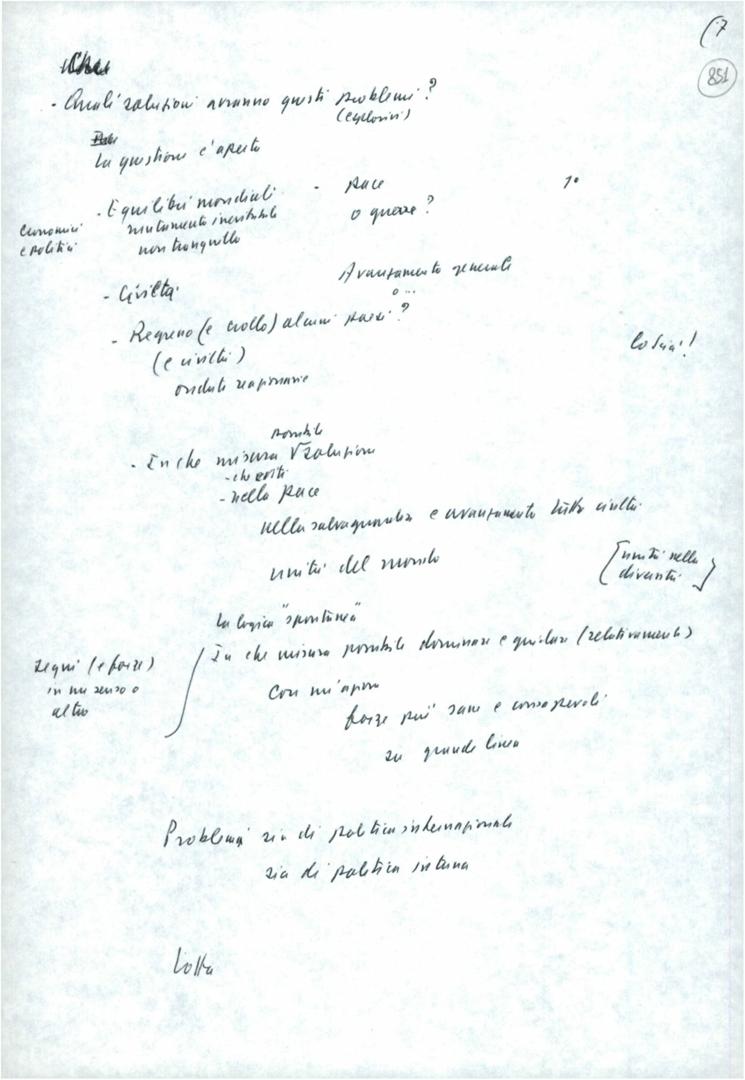 (7
851
- Quali soluzioni avranno questi problemi?
(esplosivi)
La questione è aperta
- Equilibri mondiali - pace 1°
economici mutamento inevitabile o guerra?
e politici non tranquillo
Avanzamento generale
- Civiltà o ...
- Regresso (e crollo) alcuni paesi?
(e civiltà) Così!
ondate reazionarie
possibile
- In che misura √ soluzione
- che eviti
- nella pace
nella salvaguardia e avanzamento tutte civiltà
unità del mondo [unità nella
diversità]
La logica "spontanea"
segni (e forze) In che misura possibile dominare e guidare (relativamente)
in un senso o con un'azione
altro forze più sane e consapevoli
su grande linea
Problemi sia di politica internazionale
sia di politica interna
Lotta